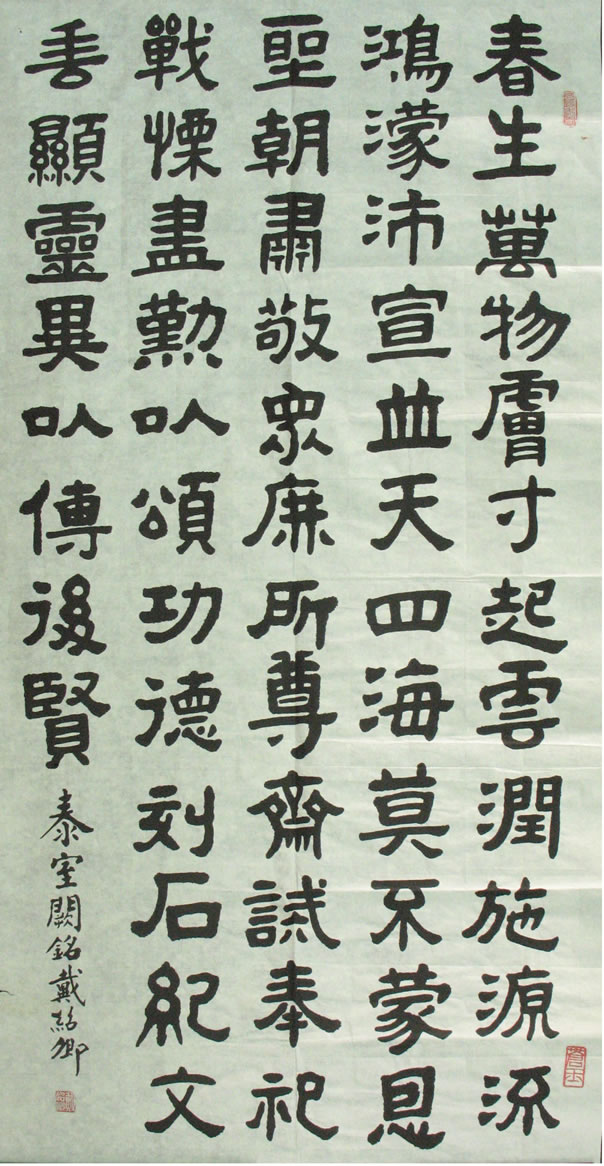 春生萬物膚寸起雲潤施源流
鴻濛沛宣並天四海莫不蒙恩
聖朝肅敬衆庶所尊齋誡奉祀
戰慄盡勤以頌功德刻石紀文
垂顯靈異以傳後賢
泰室闕銘戴紹卿